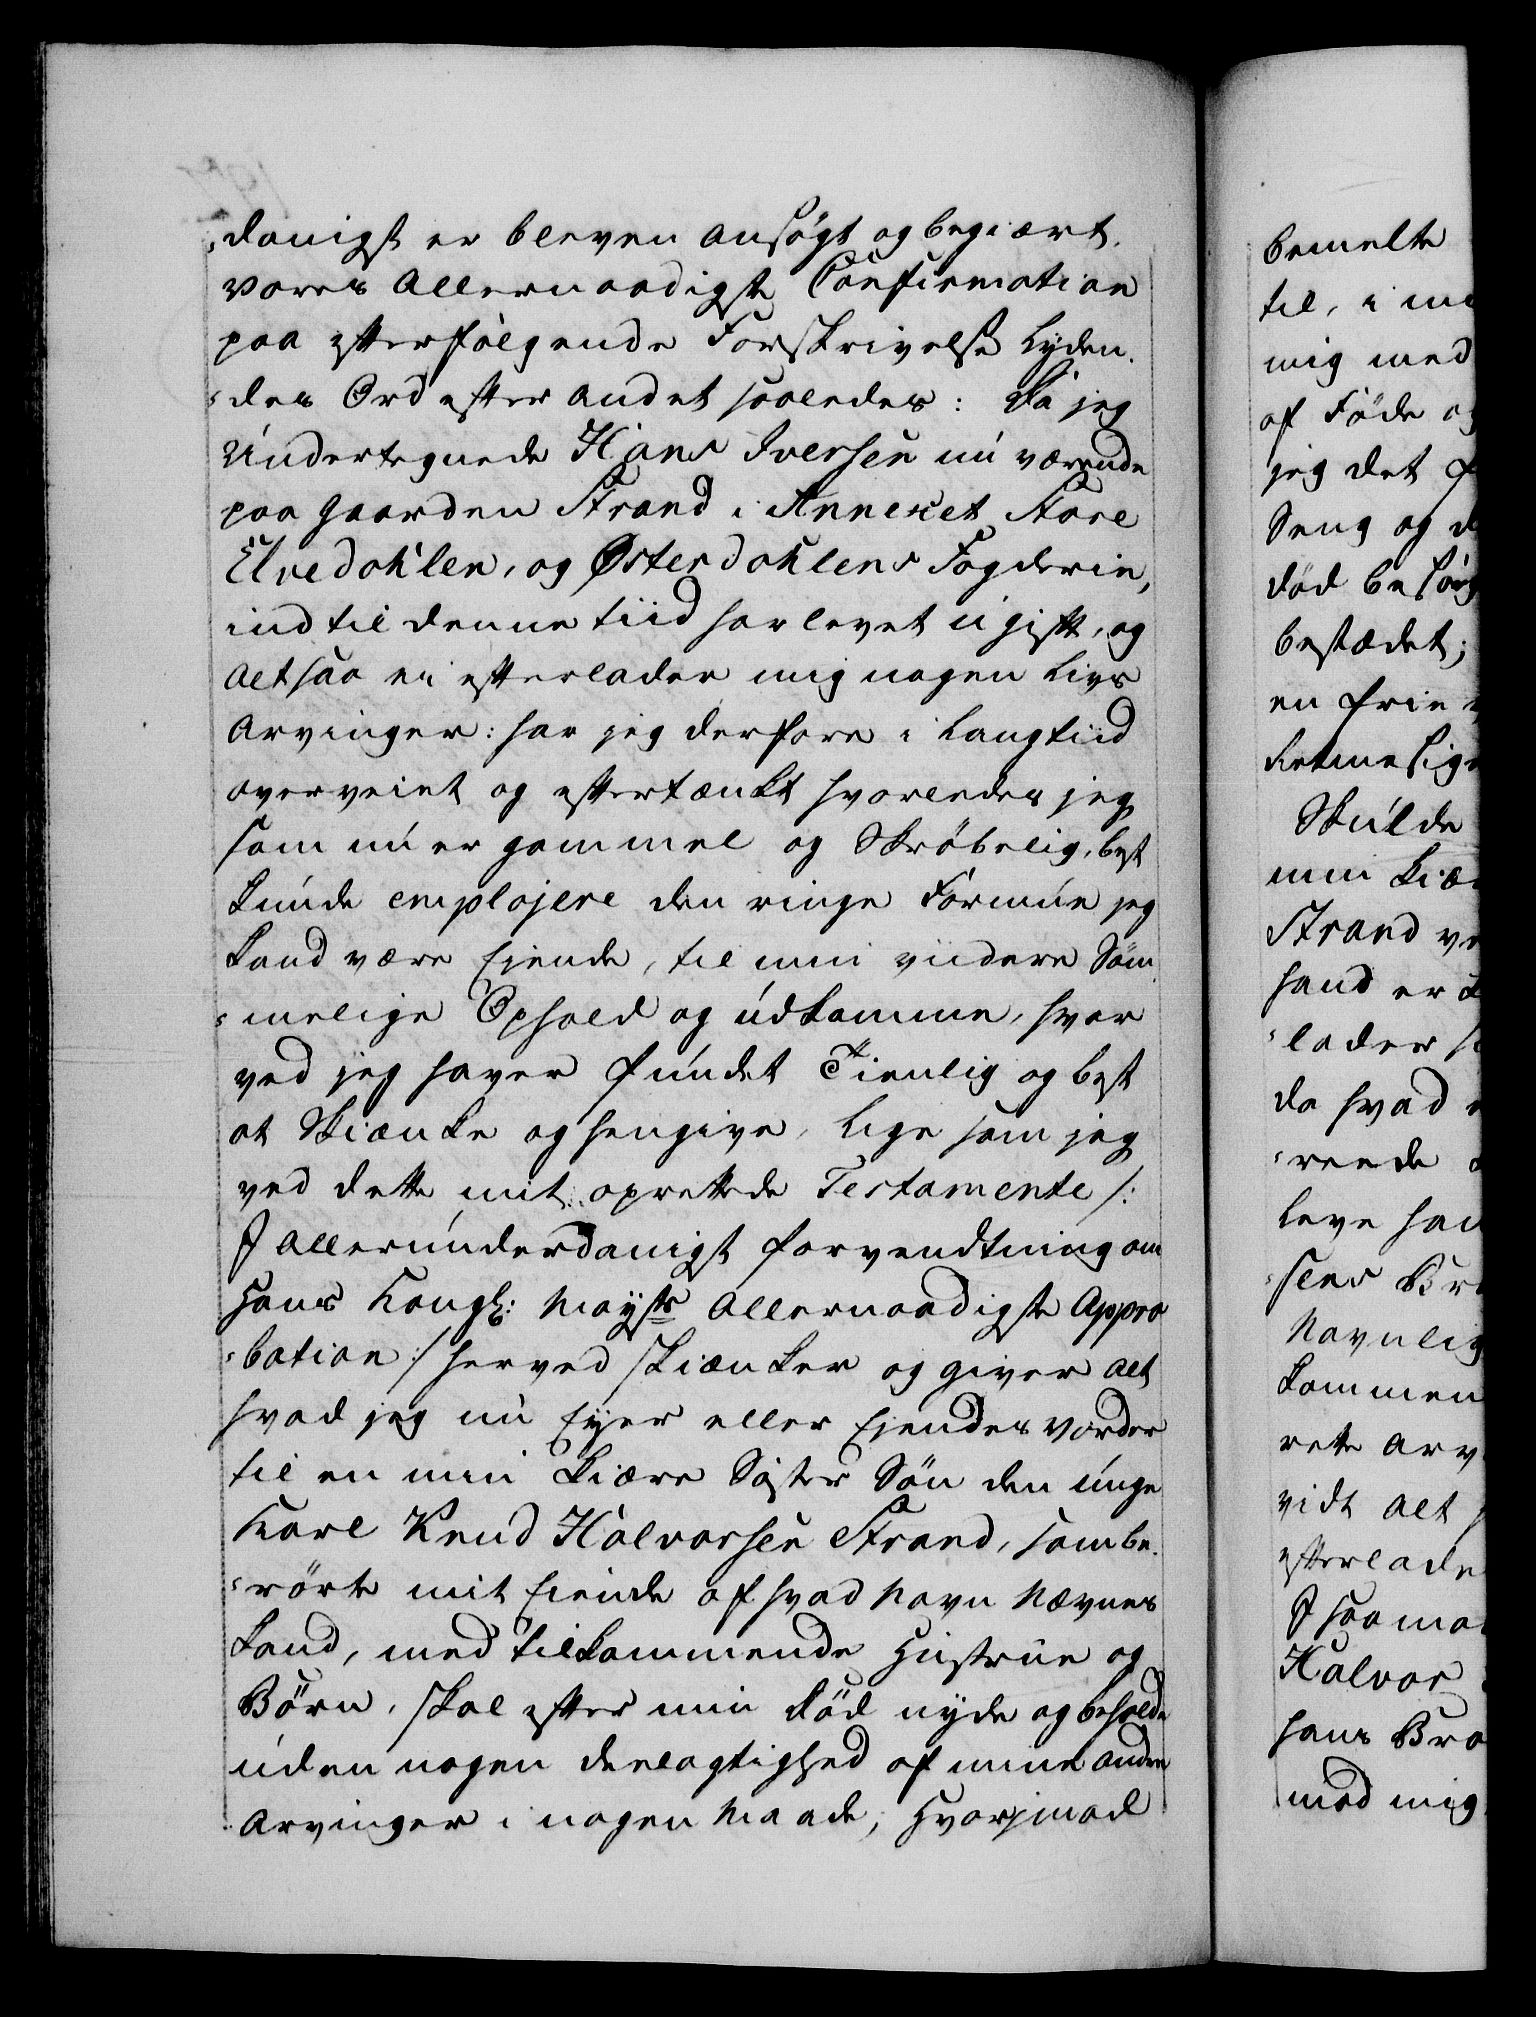 danigst er bleven ansøgt og begiært.
Vores Allernaadigste Confirmation
paa efterfølgende Forskrivelse Lyden.
des Ord efter andet saaledes: Da jeg
Undertegnede Hans Iversen nu værende
paa Gaarden Strand i Annexet Store
Elvedahlen, og Østerdahlens Fogderie,
indtil denne tiid har levet ugift, og
altsaa ei efterlader mig nogen Livs
Arvinger: har jeg derfore i Langtiid
overveiet og eftertænkt hvorledes jeg
som nu er gammel og Skrøbelig, best
kunde emplojere den ringe Formue jeg
kand være Eiende, til min viidere Søm
melige Ophold og udkomme, hvor
ved jeg haver fundet Tienlig og best
at Skiænke og hengive, lige som jeg
ved dette mit oprettede Testamente /:
I allerunderdanigst forvendtning om
Hans Kongl: Mayts Allernaadigste Appro
bation :/ herved skiænker og giver alt
hvad jeg nu Eyer eller Eiendes vorder
til en min kiære Søster Søn den unge
Karl Knud Halvorsen Strand, som be.
rørte mit Eiende af hvad Navn Nævnes
kand, med tilkommende Hustrue og
Børn, skal efter min død nyde og beholde
uden nogen deelagtighed af mine andre
Arvinger i nogen Maade; Hvorimod
bemelte
til, i mi
mig med
af Føde o
jeg det f
Seng og d
død besørg
bestædet;
en frie
Retmessige
Skulde
min kiæ
Strand ve
hand er
lader
da hvad
rende
leve han
sens Br
Navnlig
kommen
rette Arv
vidt alt
efterlade
I saa ma
Halvor
hans Bro
mod mig